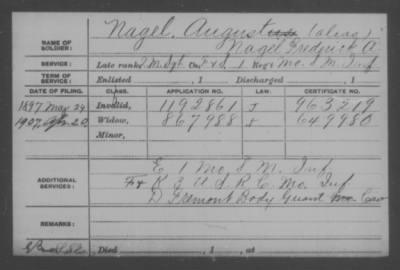 NAME OF SOLDIER: Nagel, August (alias)
Nagel, Fredrick A.
SERVICE: Late rank Q.M. Sgt. Co. F&S, 1 Reg't Mo. S. M. Inf
TERM OF SERVICE: Enlisted , 1 Discharged , 1
DATE OF FILING. CLASS. APPLICATION NO. LAW. CERTIFICATE NO.
1897 May 24 Invalid, 1192861 J 963219
1907, Apr 20 Widow, 867988 649980
Minor,
ADDITIONAL SERVICES: E 1 Mo. S. M. Inf
F & K 3 U.S.R.C. Mo. Inf
D Fremont Body Guard Mo. Cav
REMARKS:
Died , 1 , at